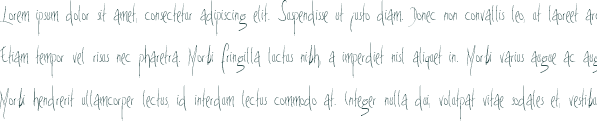 Lorem ipsum dolor sit amet, consectetur adipiscing elit. Suspendisse ut justo diam. Donec non convallis leo, ut laoreet
Etiam tempor vel risus nec pharetra. Morbi fringilla luctus nibh, a imperdiet nisl aliquet in. Morbi varius augue ac
Morbi hendrerit ullamcorper lectus, id interdum lectus commodo at. Integer nulla dui, volutpat vitae sodales et,